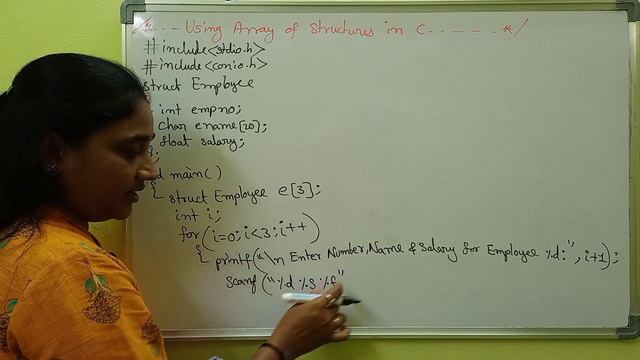 /*--- Using Array of Structures in C - - - - - */
#include<stdio.h>
#include<conio.h>
struct Employee
int empno;
char ename[20];
float salary;
};
d main()
{ struct Employee e[3];
int i;
for(i=0;i<3;i++)
{ printf("\n Enter Number,Name & Salary for Employee %d:", i+1);
scanf("%d %s %f"